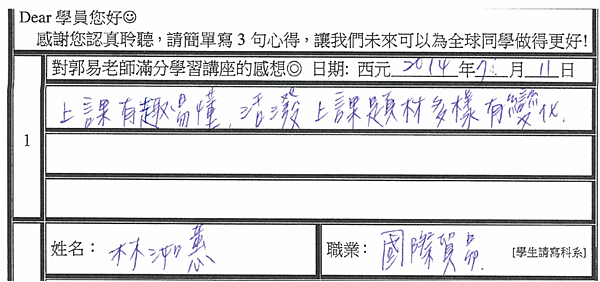 Dear 學員您好☺
感謝您認真聆聽，請簡單寫 3 句心得，讓我們未來可以為全球同學做得更好!
對郭易老師滿分學習講座的感想◎ 日期: 西元 2014 年 7 月 11 日
1
上課有趣易懂,活潑上課題材多樣有變化.
姓名： 林湘蕙 職業： 國際貿易. [學生請寫科系]